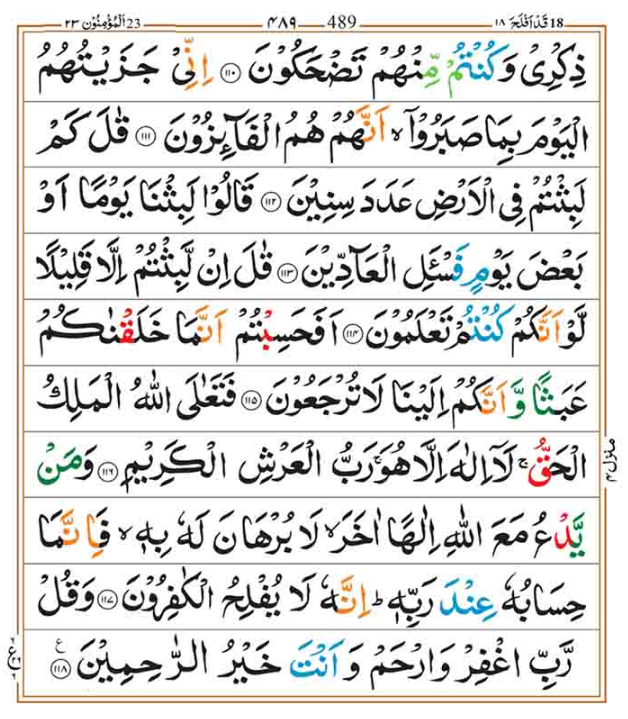 23 اَلْمُؤْمِنُوْن ٢٣ ٤٨٩ 489 18 قَدْ اَفْلَحَ ١٨
ذِكْرِىْ وَكُنْتُمْ مِّنْهُمْ تَضْحَكُوْنَ ۝١١٠ اِنِّىْ جَزَيْتُهُمُ
الْيَوْمَ بِمَا صَبَرُوْۤا ۙ اَنَّهُمْ هُمُ الْفَآئِزُوْنَ ۝١١١ قٰلَ كَمْ
لَبِثْتُمْ فِى الْاَرْضِ عَدَدَ سِنِيْنَ ۝١١٢ قَالُوْا لَبِثْنَا يَوْمًا اَوْ
بَعْضَ يَوْمٍ فَسْـَٔلِ الْعَآدِّيْنَ ۝١١٣ قٰلَ اِنْ لَّبِثْتُمْ اِلَّا قَلِيْلًا
لَّوْ اَنَّكُمْ كُنْتُمْ تَعْلَمُوْنَ ۝١١٤ اَفَحَسِبْتُمْ اَنَّمَا خَلَقْنٰكُمْ
عَبَثًا وَّ اَنَّكُمْ اِلَيْنَا لَا تُرْجَعُوْنَ ۝١١٥ فَتَعٰلَى اللّٰهُ الْمَلِكُ
الْحَقُّ ۚ لَاۤ اِلٰهَ اِلَّا هُوَ ۚ رَبُّ الْعَرْشِ الْكَرِيْمِ ۝١١٦ وَمَنْ
يَّدْعُ مَعَ اللّٰهِ اِلٰهًا اٰخَرَ ۙ لَا بُرْهَانَ لَهٗ بِهٖ ۙ فَاِنَّمَا
حِسَابُهٗ عِنْدَ رَبِّهٖ ؕ اِنَّهٗ لَا يُفْلِحُ الْكٰفِرُوْنَ ۝١١٧ وَقُلْ
رَّبِّ اغْفِرْ وَارْحَمْ وَاَنْتَ خَيْرُ الرّٰحِمِيْنَ ۝١١٨ ع
منزل ٤